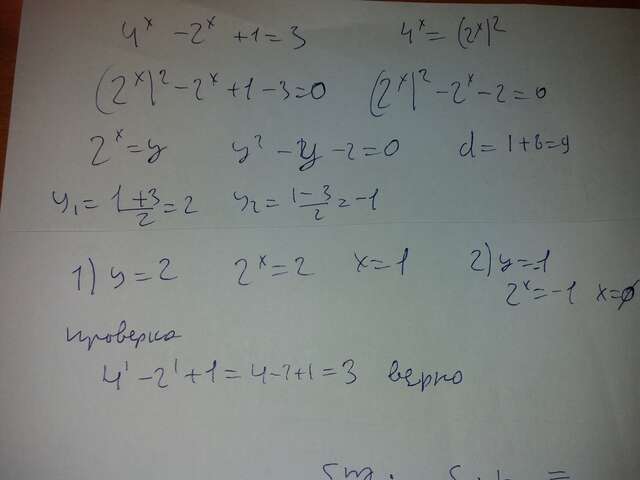 4ˣ - 2ˣ + 1 = 3 4ˣ = (2ˣ)²
(2ˣ)² - 2ˣ + 1 - 3 = 0 (2ˣ)² - 2ˣ - 2 = 0
2ˣ = y y² - y - 2 = 0 d = 1 + 8 = 9
y₁ = (1 + 3)/2 = 2 y₂ = (1 - 3)/2 = -1
1) y = 2 2ˣ = 2 x = 1 2) y = -1
2ˣ = -1 x = ∅
проверка
4¹ - 2¹ + 1 = 4 - 2 + 1 = 3 верно